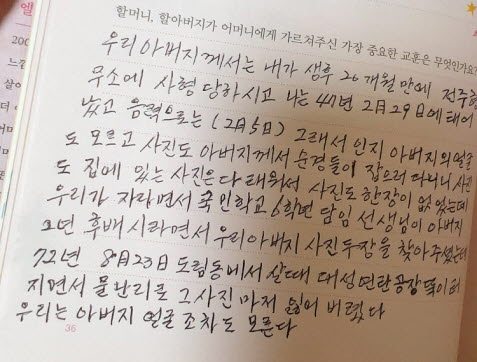 할머니, 할아버지가 어머니에게 가르쳐주신 가장 중요한 교훈은 무엇인가요?
우리 아버지께서는 내가 생후 26개월 만에 전주형
무소에 사형 당하시고 나는 47년 2月 29日에 태어
났고 음력으로는 (2月 5日) 그래서 인지 아버지의 얼굴
도 모르고 사진도 아버지께서 순경들이 잡으러 다니니 사진
도 집에 있는 사진은 다 태워서 사진도 한장이 없었는데
우리가 자라면서 죽인학교 6학년 담임 선생님이 아버지
2년 후배 시라면서 우리아버지 사진두장을 찾아주셨는데
72년 8月 23日 도림동에서 살때 대성연탄공장 뚝이 터
지면서 물난리로 그 사진 마저 잃어 버렸다
우리는 아버지 얼굴 조차도 모른다
36
엘
200
느낌
살아
더 0
어머
마